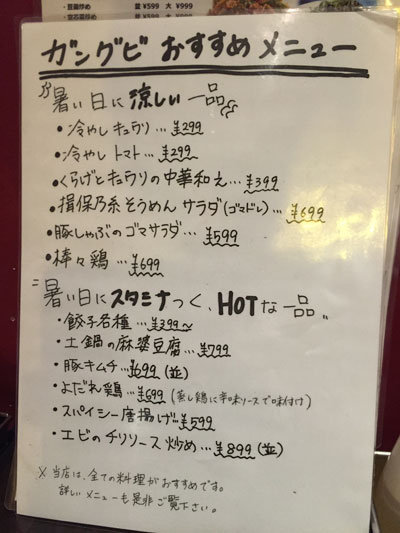 ・豆苗炒め 並¥599 大¥999
並¥599 大¥999
ガングビ おすすめメニュー
暑い日に涼しい一品
・冷やしキュウリ…¥299
・冷やしトマト…¥299
・くらげとキュウリの中華和え…¥399
・揖保乃糸そうめんサラダ(ゴマドレ)…¥699
・豚しゃぶのゴマサラダ…¥599
・棒々鶏…¥699
暑い日にスタミナつく、HOTな一品
・餃子各種…¥399~
・土鍋の麻婆豆腐…¥799
・豚キムチ…¥699(並)
・よだれ鶏…¥699(蒸し鶏に辛味ソースで味付け)
・スパイシー唐揚げ…¥599
・エビのチリソース炒め…¥899(並)
※当店は、全ての料理がおすすめです。
詳しいメニューも是非ご覧下さい。